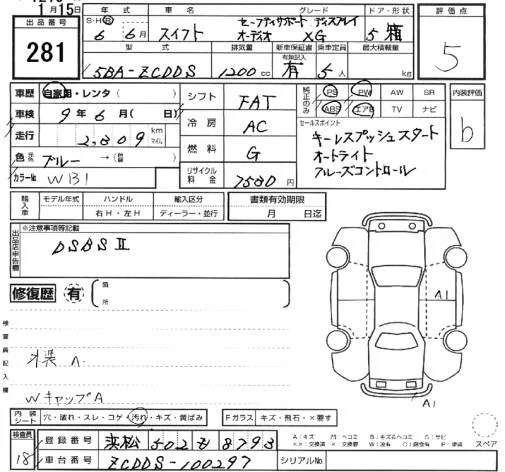 15日
出品番号
281
年式 車名 グレード ドア・形状
S・H・R
6年 6月 スイフト
セーフティサポート ディスプレイ
オーディオ XG
5 箱
型式 排気量 新車保証書 乗車定員 最大積載量
有無記入
5BA-ZCDDS 1200cc 有 5人 kg
評価点
5
車歴 自家用・レンタ( )
車検 9年6月( 日)
走行 2,809 km マイル
色 ブルー →( )
カラーNo WB1
シフト FAT
冷房 AC
燃料 G
リサイクル料金 7580円
純正のみ
PS PW AW SR
ABS エアB TV ナビ
セールスポイント
キーレスプッシュスタート
オートライト
クルーズコントロール
内装評価
b
輸入車
モデル年式 ハンドル 輸入区分
右H・左H ディーラー・並行
書類有効期限
月 日迄
出品店申告欄
※注意事項等記載
DSBSⅡ
修復歴 有 箇所
検査員記入欄
外装A
WキャップA
A1
A1
内装シート 穴・破れ・スレ・コゲ・汚れ・キズ・黄ばみ
Fガラス キズ・飛石・×要す
スペア
検査員
18
登録番号 浜松 502 8793
車台番号 ZCDDS-100297
シリアルNo